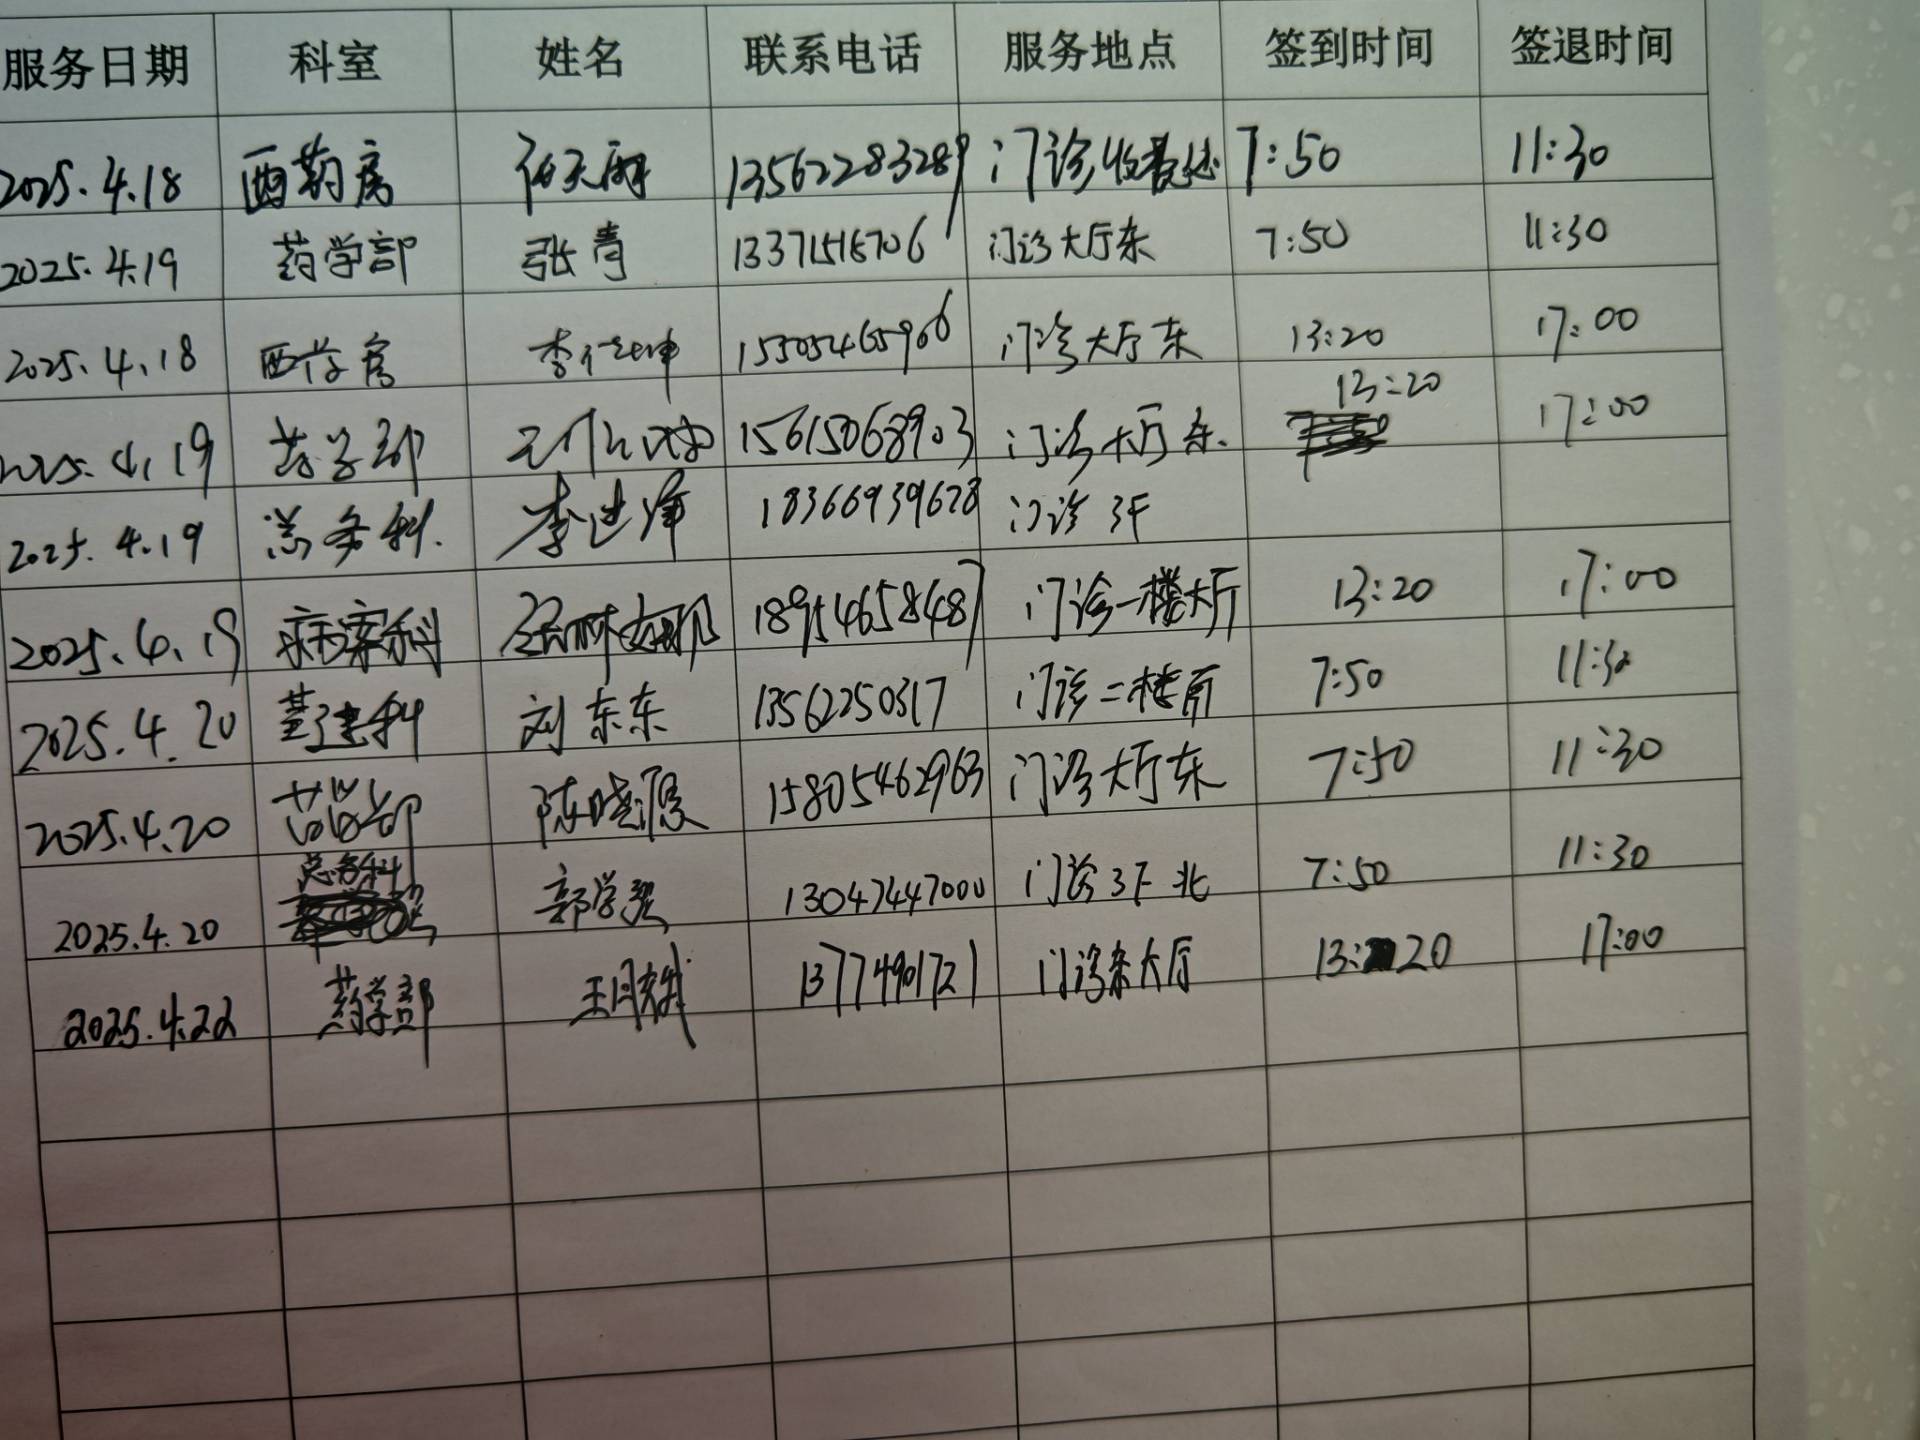 服务日期 科室 姓名 联系电话 服务地点 签到时间 签退时间
2025.4.18 西药房 13562283289 门诊收费处 7:50 11:30
2025.4.19 药学部 张青 13371515706 门诊大厅东 7:50 11:30
2025.4.18 西药房 李 坤 15305465906 门诊大厅东 13:20 17:00
2025.4.19 药学部 15615068903 门诊大厅东. 13:20 17:00
2025.4.19 总务科. 李进泽 18366939678 门诊3F
2025.4.19 病案科 18954658487 门诊一楼大厅 13:20 17:00
2025.4.20 基建科 刘东东 13562250317 门诊二楼南 7:50 11:30
2025.4.20 药学部 陈晓源 15805462963 门诊大厅东 7:50 11:30
2025.4.20 总务科 郭学 13047447000 门诊3F北 7:50 11:30
2025.4.22 药学部 王月 13774901721 门诊东大厅 13:20 17:00